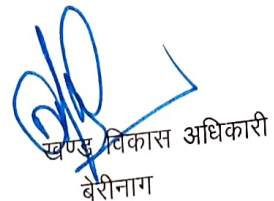 खण्ड विकास अधिकारी
बेरीनाग